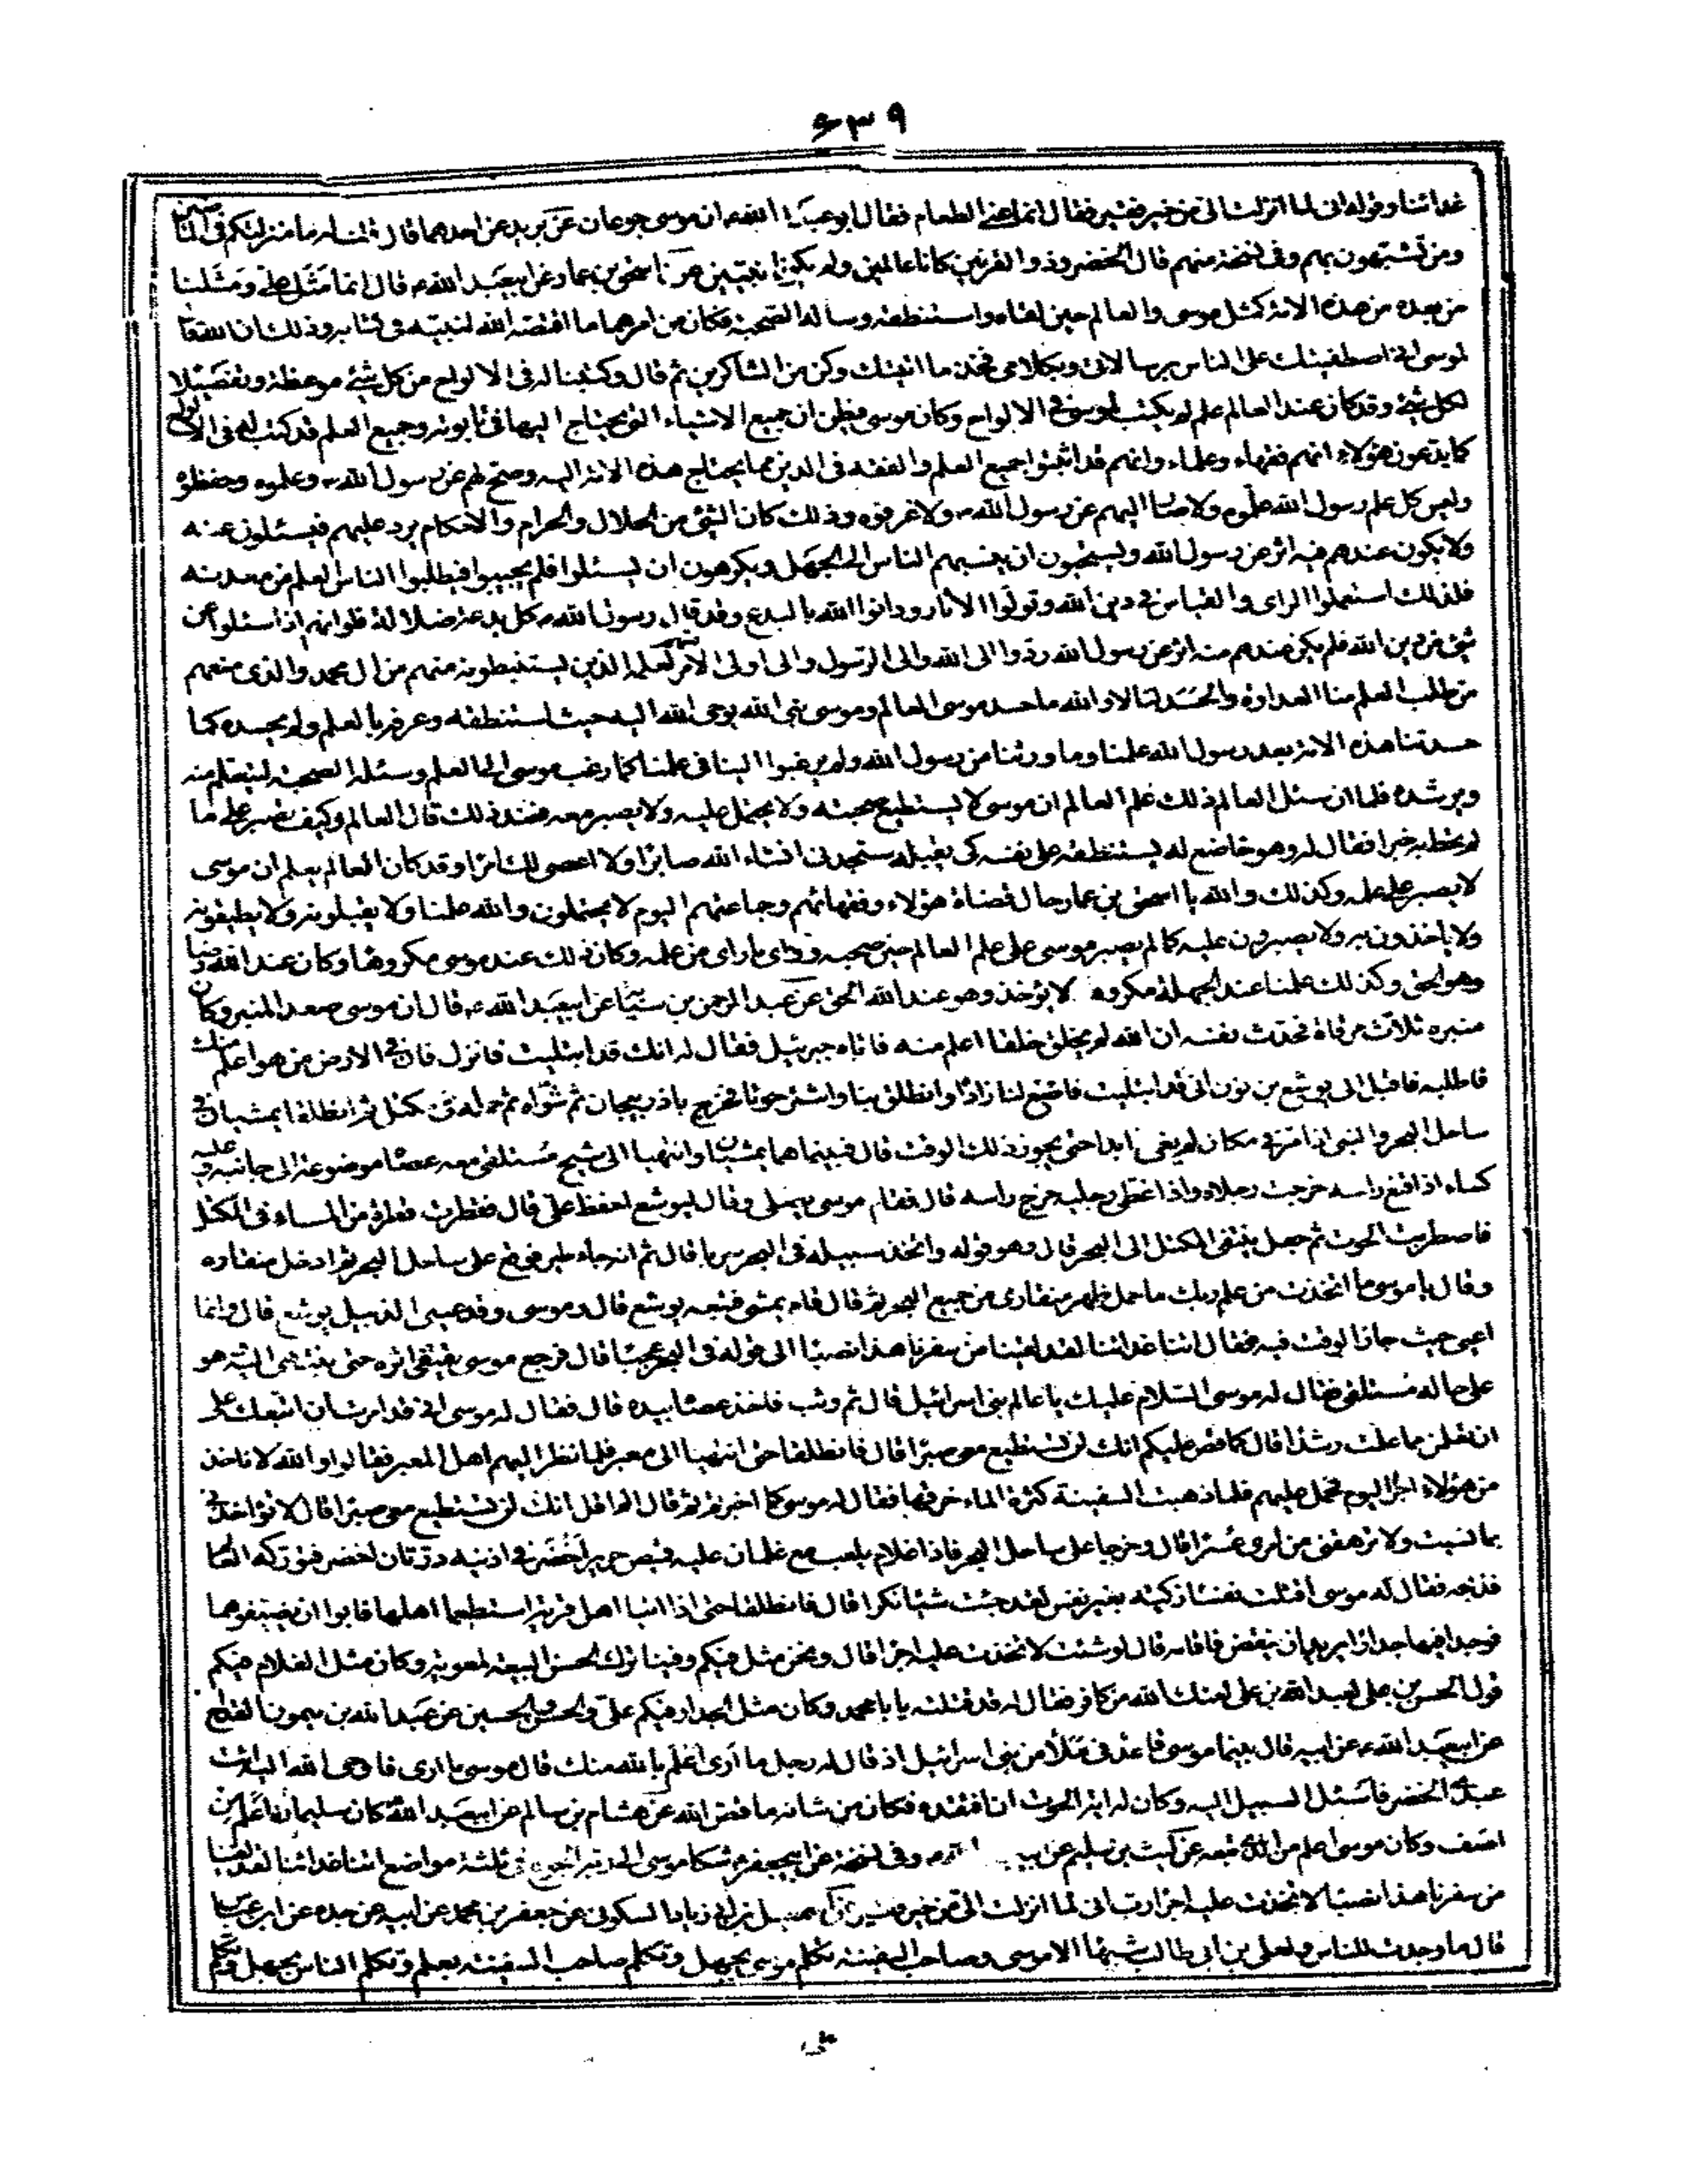 ۶۳۹
غدائنا وقوله انى لما انزلت الى من خير فقير فقال انما عنى الطعام فقال ابو عبد الله ان موسى جوعان عن بريد عن احدهما قال قلت له ما منزلتكم فى الماضين
ومن تشبهون بهم وفى نسخة منهم قال الخضر وذو القرنين كانا عالمين ولم يكونا نبيين عن اسحق بن عمار عن ابيعبد الله قال انما مثل على ومثلنا
من بعده من هذه الامة كمثل موسى والعالم حين لقاه واستنطقه وساله الصحبة فكان من امرهما ما اقتصه الله لنبيه فى كتابه وذلك ان الله قال
لموسى انى اصطفيتك على الناس برسالاتى وبكلامى فخذ ما اتيتك وكن من الشاكرين ثم قال وكتبنا له فى الالواح من كل شئ موعظة وتفصيلا
لكل شئ وقد كان عند العالم علم لم يكتب لموسى فى الالواح وكان موسى يظن ان جميع الاشياء التى يحتاج اليها فى تابوته وجميع العلم قد كتب له فى الالواح
كما يدعون هؤلاء انهم فقهاء وعلماء وانهم قد اثبتوا جميع العلم والفقه فى الدين مما يحتاج هذه الامة اليه وصح لهم عن رسول الله وعلموه وحفظوه
وليس كل علم رسول الله علموه ولا صار اليهم عن رسول الله ولا عرفوه وذلك كان الشئ من الحلال والحرام والاحكام يرد عليهم فيسئلون عنه
ولا يكون عندهم فيه اثر عن رسول الله ويستحيون ان ينسبهم الناس الى الجهل ويكرهون ان يسئلوا فلم يجيبوا فيطلبوا الناس العلم من معدنه
فلذلك استعملوا الراى والقياس فى دين الله وتركوا الاثار ودانوا الله بالبدع وقد قال رسول الله كل بدعة ضلالة فلو انهم اذ اسئلوا عن
شئ من دين الله فلم يكن عندهم منه اثر عن رسول الله ردوا الى الله والى الرسول والى اولى الامر منهم لعلمه الذين يستنبطونه منهم من ال محمد والذى منعهم
من طلب العلم منا العداوة والحسد لنا لا والله ما حسد موسى العالم وموسى نبى الله يوحى الله اليه حيث استنطقه وعرفه بالعلم ولم يحسده كما
حسدتنا هذه الامة بعد رسول الله علمنا وما ورثنا من رسول الله ولم يرغبوا الينا فى علمنا كما رغب موسى الى العالم وسئله الصحبة ليتعلم منه
ويرشده فلما ان سئل العالم ذلك علم العالم ان موسى لا يستطيع صحبته ولا يحتمل عليه ولا يصبر معه فعند ذلك قال العالم وكيف تصبر على ما
لم تحط به خبرا فقال له وهو خاضع له يستنطقه على نفسه كى يقبله ستجدنى انشاء الله صابرا ولا اعصى لك امرا وقد كان العالم يعلم ان موسى
لا يصبر على علمه وكذلك والله يا اسحق بن عمار حال قضاة هؤلاء وفقهائهم وجماعتهم اليوم لا يحتملون والله علمنا ولا يقبلونه ولا يطيقونه
ولا ياخذون به ولا يصبرون عليه كما لم يصبر موسى على علم العالم حين صحبه وراى ما راى من علمه وكان ذلك عند موسى مكروها وكان عند الله رضا
وهو الحق وكذلك علمنا عند الجهلة مكروه لا يؤخذ وهو عند الله الحق عن عبد الرحمن بن سيابة عن ابيعبد الله قال ان موسى صعد المنبر وكان
منبره ثلاث مرقاة فحدث نفسه ان الله لم يخلق خلقا اعلم منه فاتاه جبرئيل فقال له انك قد ابتليت فانزل فان فى الارض من هو اعلم منك
فاطلبه فاقبل الى يوشع بن نون انى قد ابتليت فاصنع لنا زادا وانطلق بنا واشتر حوتا فخرج باذربيجان ثم شواه ثم حمله فى مكتل ثم انطلقا يمشيان فى
ساحل البحر والنبى اذا مر فى مكان لم يعى ابدا حتى يجوز ذلك الوقت قال فبينما هما يمشيان وانتهيا الى شيخ مستلقى معه عصا موضوعة الى جانبه وعليه
كساء اذا قنع راسه خرجت رجلاه واذا غطى رجليه خرج راسه قال فقام موسى يصلى وقال ليوشع احفظ على قال فقطرت قطرة من السماء فى المكتل
فاضطرب الحوت ثم جعل يثقى المكتل الى البحر قال وهو قوله واتخذ سبيله فى البحر سربا قال ثم انه جاء طير فوقع على ساحل البحر ثم ادخل منقاره
وقال يا موسى ما اتخذت من علم ربك ما حمل ظهر منقارى من جميع البحر ثم قال قام يمشى فتبعه يوشع قال موسى وقد عيى الزبيل يوشع قال وانما
اعيى حيث جاز الوقت فيه فقال اتنا غدائنا لقد لقينا من سفرنا هذا نصبا الى قوله فى البحر عجبا قال فرجع موسى يقتفى اثره حتى انتهى اليه هو
على حاله مستلقى فقال له موسى السلام عليك يا عالم بنى اسرائيل قال ثم وثب فاخذ عصا بيده قال فقال له موسى انى قد امرت ان اتبعك على
ان تعلمن مما علمت رشدا قال كما قص عليكم انك لن تستطيع معى صبرا قال فانطلقا حتى انتهيا الى معبر فلما نظر اليهم اهل المعبر فقالوا والله لا ناخذ
من هؤلاء اجرا اليوم نحمل عليهم فلما ذهبت السفينة كثرة الماء خرقها فقال له موسى كما اخبرتم ثم قال الم اقل انك لن تستطيع معى صبرا قال لا تؤاخذنى
بما نسيت ولا ترهقنى من امرى عسرا قال وخرجا على ساحل البحر فاذا غلام يلعب مع غلمان عليه قميص حرير اخضر فى اذنيه درتان اخضر فتوركه العالم
فذبحه فقال له موسى اقتلت نفسا زكية بغير نفس لقد جئت شيئا نكرا قال فانطلقا حتى اذا اتيا اهل قرية استطعما اهلها فابوا ان يضيفوهما
فوجدا فيها جدارا يريد ان ينقض فاقامه قال لو شئت لاتخذت عليه اجرا قال ونحن مثل فيكم وفينا ترك الحسن البيعة لمعوية وكان مثل الغلام فيكم
قول الحسن بن على لعبد الله بن على لعنك الله من كافر فقال له قد قتلته يا با محمد وكان مثل الجدار فيكم على والحسن والحسين عن عبد الله بن ميمون القداح
عن ابيعبد الله عن ابيه قال بينما موسى قاعد فى ملأ من بنى اسرائيل اذ قال له رجل ما ارى اعلم بالله منك قال موسى ما ارى فاوحى الله اليه بلى
عبدى الخضر فاسئل السبيل اليه وكان له اية الحوت ان افتقده فكان من شانه ما قص الله عن هشام بن سالم عن ابيعبد الله كان سليمان اعلم من
اصف وكان موسى اعلم من الذى تبعه عن ليث بن سليم عن وفى نسخة عن ابيجعفر شكا موسى الى ربه الجوع فى ثلثة مواضع اتنا غدائنا لقد لقينا
من سفرنا هذا نصبا لاتخذت عليه اجرا رب انى لما انزلت الى من خير فقير عن اسمعيل بن ابى زياد السكونى عن جعفر بن محمد عن ابيه عن جده عن ابن عباس
قال ما وجدت للناس ولعلى بن ابى طالب شبها الا موسى وصاحب السفينة تكلم موسى بجهل وتكلم صاحب السفينة بعلم وتكلم الناس بجهل وتكلم
على